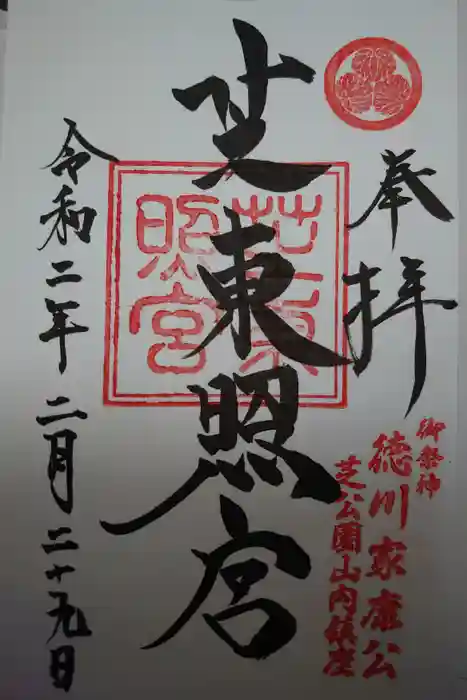 奉拝
御祭神
徳川家康公
芝公園山内鎮座
芝東照宮
芝東照宮
令和二年二月二十九日